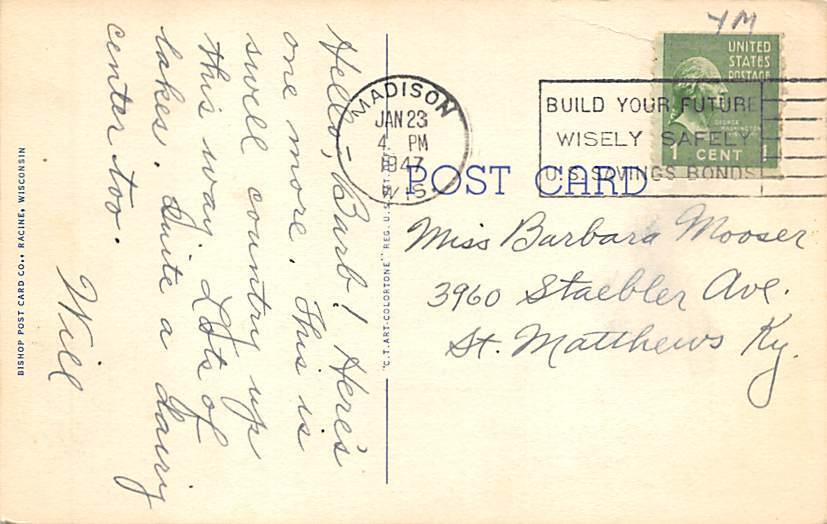 YM
UNITED
STATES
POSTAGE
GEORGE
WASHINGTON
1 CENT 1
MADISON
JAN 23
4 PM
1947
WIS
BUILD YOUR FUTURE
WISELY SAFELY
U.S. SAVINGS BONDS
POST CARD
Miss Barbara Mooser
3960 Staebler Ave.
St. Matthews Ky.
Hello, Barb! Here's
one more. This is
swell country up
this way. Lots of
lakes. Quite a dairy
center too.
Will
"C.T. ART-COLORTONE" REG. U.S.
BISHOP POST CARD CO., RACINE, WISCONSIN